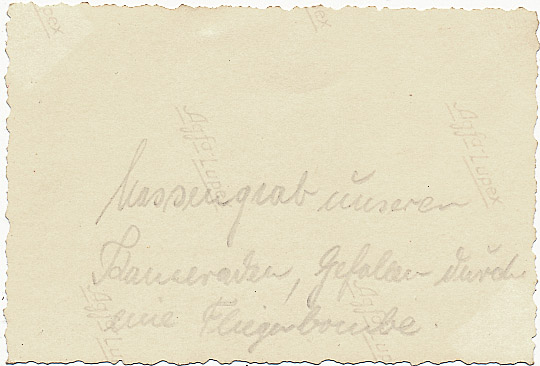 Massengrab unserer
Kameraden, Gefalen durch
eine Fliegerbombe.
Agfa-Lupex
Agfa-Lupex
Agfa-Lupex
Agfa-Lupex